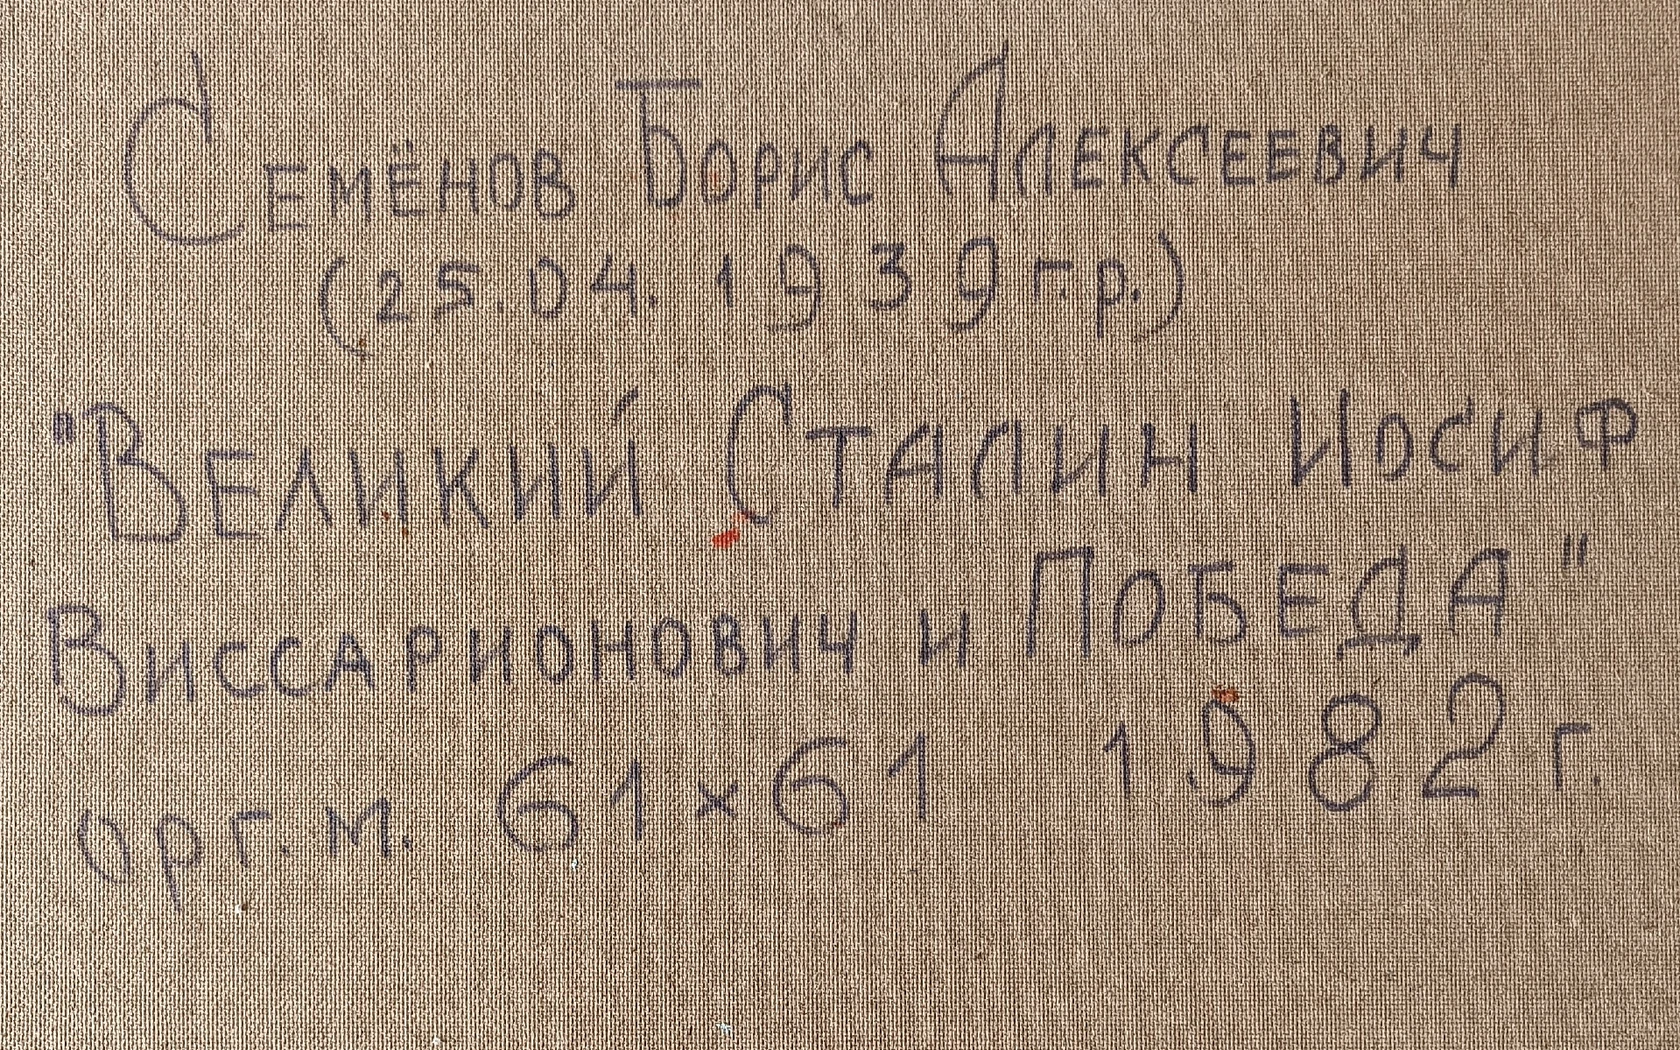 Семёнов Борис Алексеевич
(25.04.1939 г.р.)
"Великий Сталин Иосиф
Виссарионович и Победа"
орг. м. 61×61 1982 г.